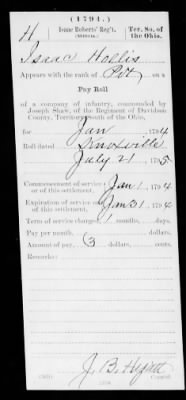 (1794.)
H Isaac Roberts' Reg't. Ter. So. of the Ohio.
Isaac Hollis
Appears with the rank of Pvt on a
Pay Roll
of a company of infantry, commanded by
Joseph Shaw, of the Regiment of Davidson
County, Territory South of the Ohio,
for Jan , 1794
Roll dated Knoxville
July 21 , 1795
Commencement of service or of this settlement, Jan 1 , 1794
Expiration of service or of this settlement, Jan 31 , 1794
Term of service charged, 1 months, days.
Pay per month, dollars, cents.
Amount of pay, 3 dollars, cents.
Remarks:
J. B. Hyatt
Copyist.